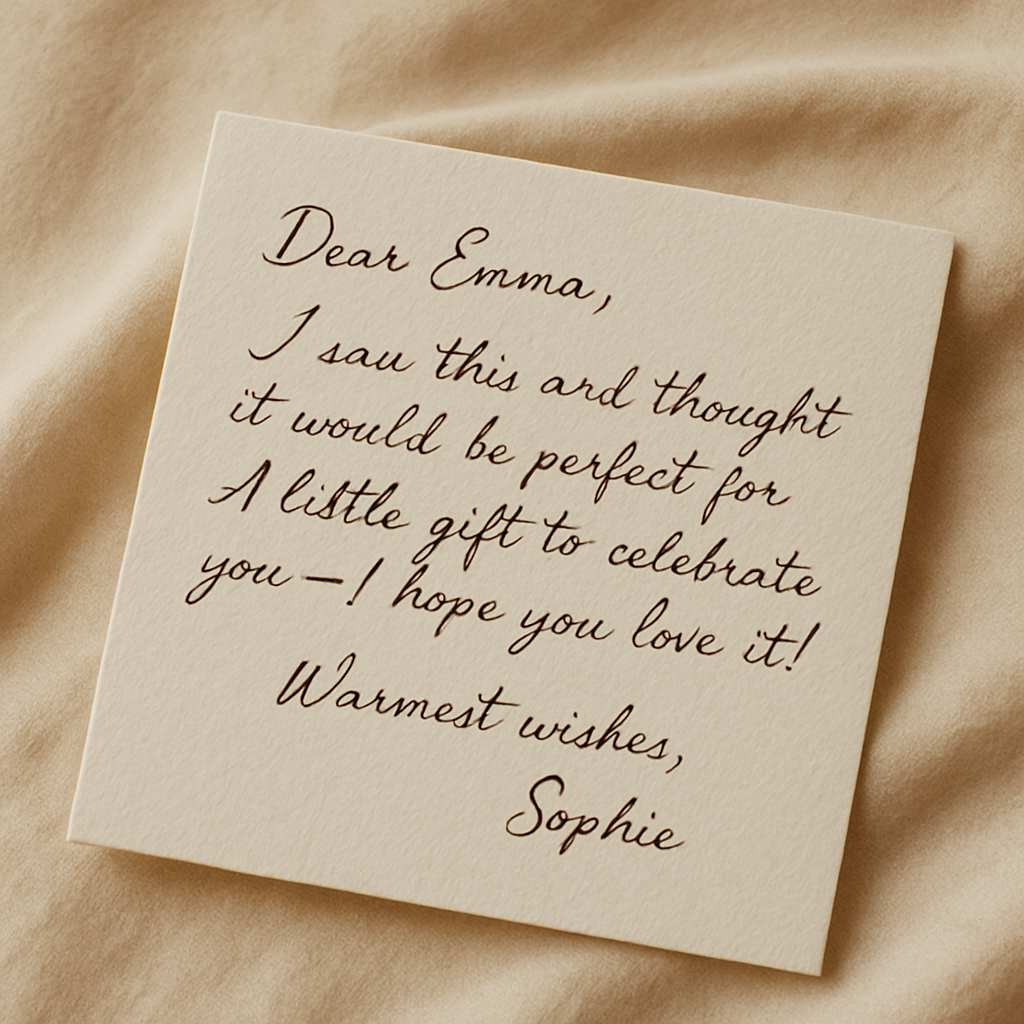 Dear Emma,
I saw this and thought
it would be perfect for
A little gift to celebrate
you—! hope you love it!
Warmest wishes,
Sophie